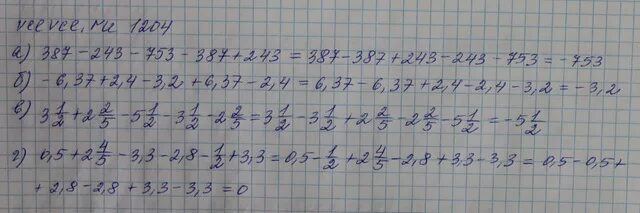 veevee, Mи 1204
а) 387-243-753-387+243 = 387-387+243-243-753=-753
б) -6,37+2,4-3,2+6,37-2,4 = 6,37-6,37+2,4-2,4-3,2=-3,2
в) 3 1/2 + 2 2/5 - 5 1/2 - 3 1/2 - 2 2/5 = 3 1/2 - 3 1/2 + 2 2/5 - 2 2/5 - 5 1/2 = -5 1/2
г) 0,5 + 2 4/5 - 3,3 - 2,8 - 1/2 + 3,3 = 0,5 - 1/2 + 2 4/5 - 2,8 + 3,3 - 3,3 = 0,5 - 0,5 +
+ 2,8 - 2,8 + 3,3 - 3,3 = 0